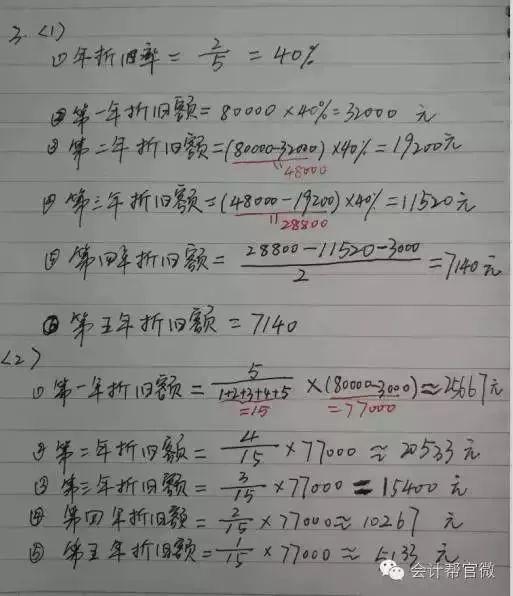 3. <1)
① 年折旧率 = 2/5 = 40%
② 第一年折旧额 = 80000 × 40% = 32000 元
③ 第二年折旧额 = (80000-32000) × 40% = 19200元
48000
④ 第三年折旧额 = (48000-19200) × 40% = 11520元
28800
⑤ 第四年折旧额 = 28800-11520-3000/2 = 7140元
⑥ 第五年折旧额 = 7140
<2)
① 第一年折旧额 = 5/1+2+3+4+5 × (80000-3000) ≈ 25667元
=15 =77000
② 第二年折旧额 = 4/15 × 77000 ≈ 20533 元
③ 第三年折旧额 = 3/15 × 77000 = 15400 元
④ 第四年折旧额 = 2/15 × 77000 ≈ 10267 元
⑤ 第五年折旧额 = 1/15 × 77000 ≈ 5133 元
会计帮官微